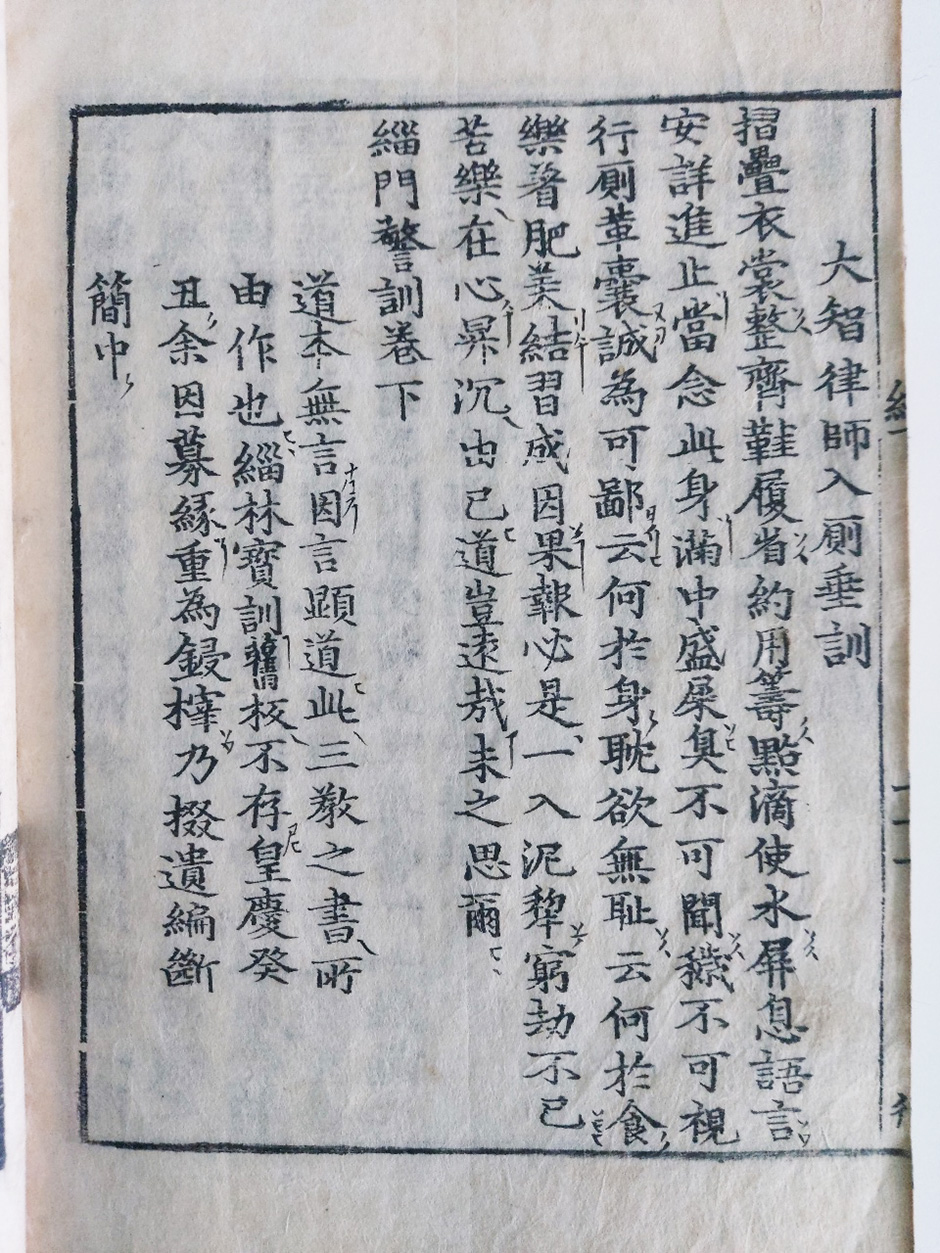 大智律師入厠垂訓
摺疊衣裳整齊鞋履省約用籌點滴使水屏息語言
安詳進止當念此身滿中盛屎臭不可聞穢不可視
行厠革囊誠為可鄙云何於身耽欲無耻云何於食
樂著肥美結習成因果報必是一入泥犂窮劫不已
苦樂在心昇沉由己道豈遠哉未之思爾
緇門警訓卷下
道本無言因言顯道此三教之書所
由作也緇林寶訓舊板不存皇慶癸
丑余因募緣重為鋟梓乃掇遺編斷
簡中